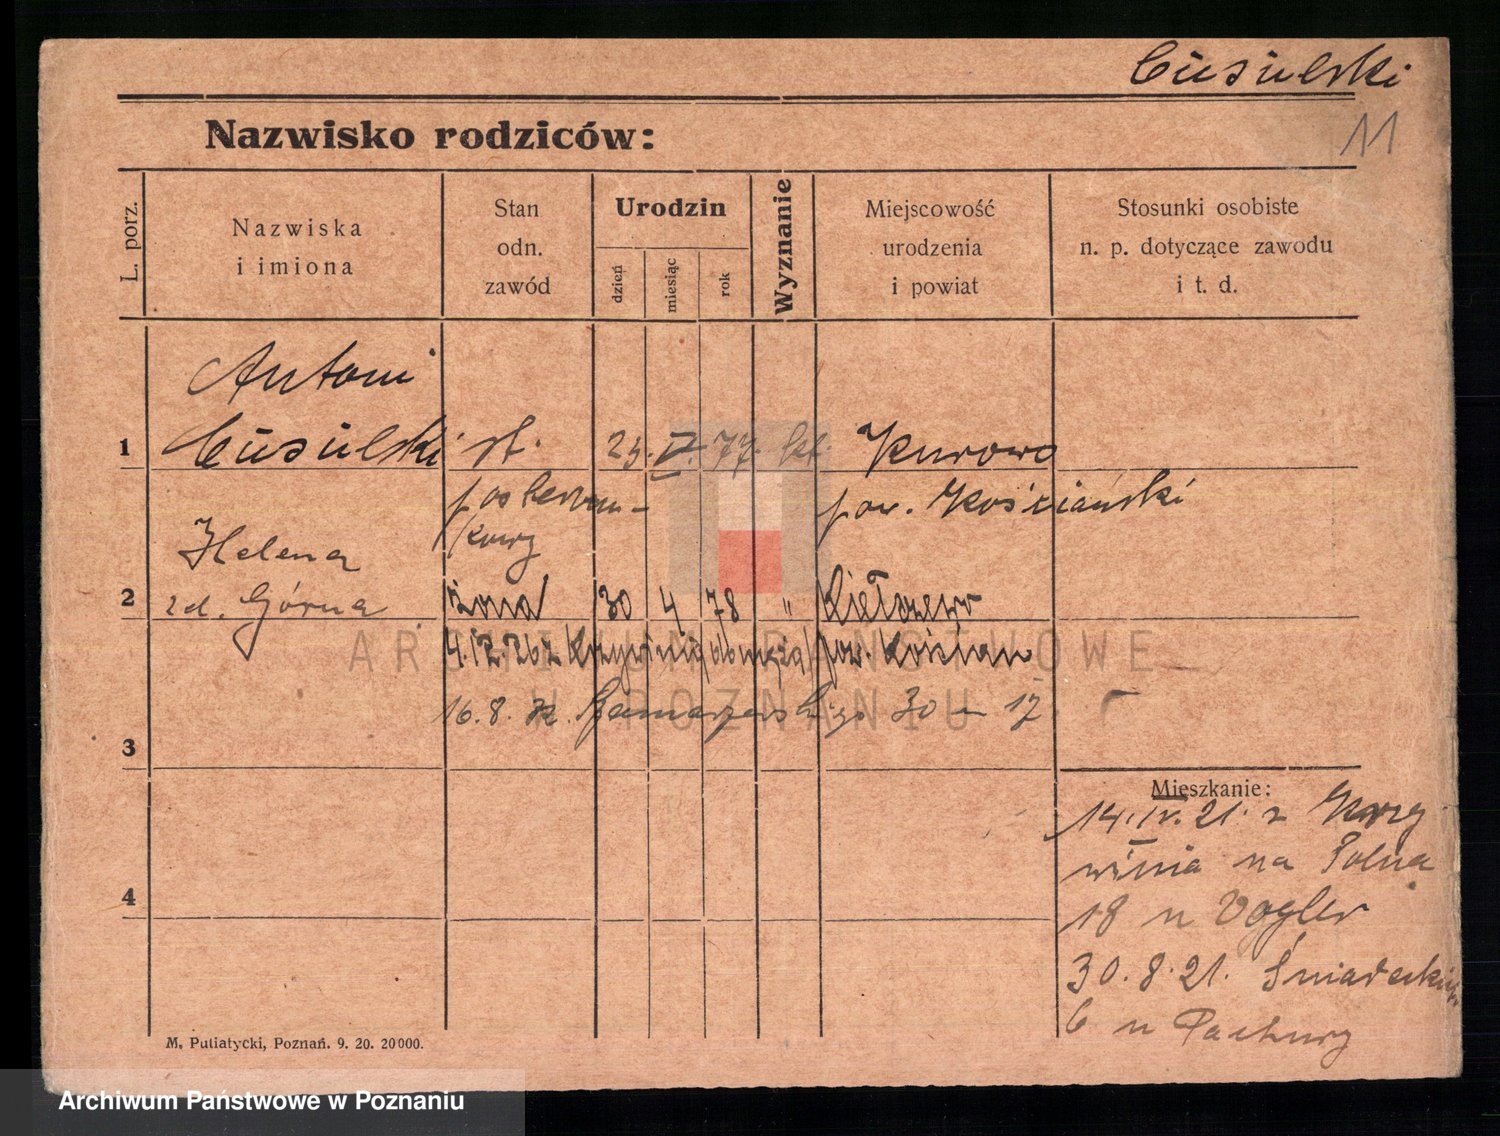 Cusulski
11
Nazwisko rodziców:
L. porz.
Nazwiska
i imiona
Stan
odn.
zawód
Urodzin
dzień
miesiąc
rok
Wyznanie
Miejscowość
urodzenia
i powiat
Stosunki osobiste
n. p. dotyczące zawodu
i t. d.
Antoni
1 Cusulski st. 23. IV. 77. kt. Kurowo
posterun-
kowy
pow. Kościański
Helena
2 zd. Górna żona 30 4 78 " Kiełczewo
4.12.26 z Krzywinia pow. Kościan
16.8. 30 m 17
3
Mieszkanie:
14.IV.21. z Krzy
winia na Polna
18 u Vogler
30.8.21. Śniadeckich
6 u
4
M. Putiatycki, Poznań. 9. 20. 20000.
ARCHIWUM PAŃSTWOWE
W POZNANIU
Archiwum Państwowe w Poznaniu